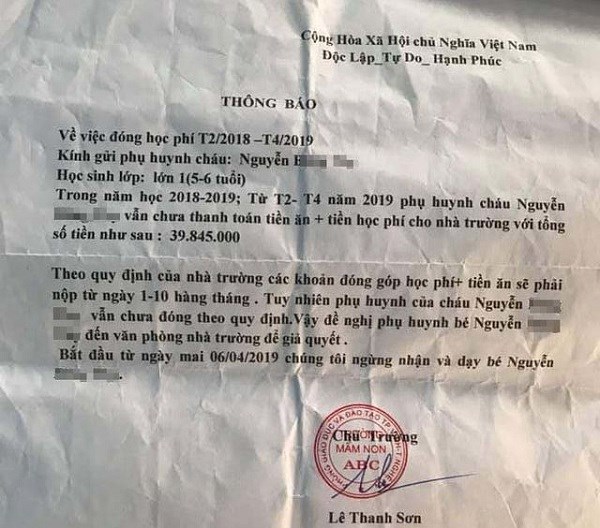 Cộng Hòa Xã Hội chủ Nghĩa Việt Nam
Độc Lập_Tự Do_ Hạnh Phúc
THÔNG BÁO
Về việc đóng học phí T2/2018 –T4/2019
Kính gửi phụ huynh cháu: Nguyễn
Học sinh lớp: lớn 1(5-6 tuổi)
Trong năm học 2018-2019; Từ T2- T4 năm 2019 phụ huynh cháu Nguyễn
vẫn chưa thanh toán tiền ăn + tiền học phí cho nhà trường với tổng
số tiền như sau : 39.845.000
Theo quy định của nhà trường các khoản đóng góp học phí+ tiền ăn sẽ phải
nộp từ ngày 1-10 hàng tháng . Tuy nhiên phụ huynh của cháu Nguyễn
vẫn chưa đóng theo quy định.Vậy đề nghị phụ huynh bé Nguyễn
đến văn phòng nhà trường để giả quyết .
Bắt đầu từ ngày mai 06/04/2019 chúng tôi ngừng nhận và dạy bé Nguyễn
.
Chủ Trường
PHÒNG GIÁO DỤC VÀ ĐÀO TẠO TP.
MẦM NON
ABC
Lê Thanh Sơn